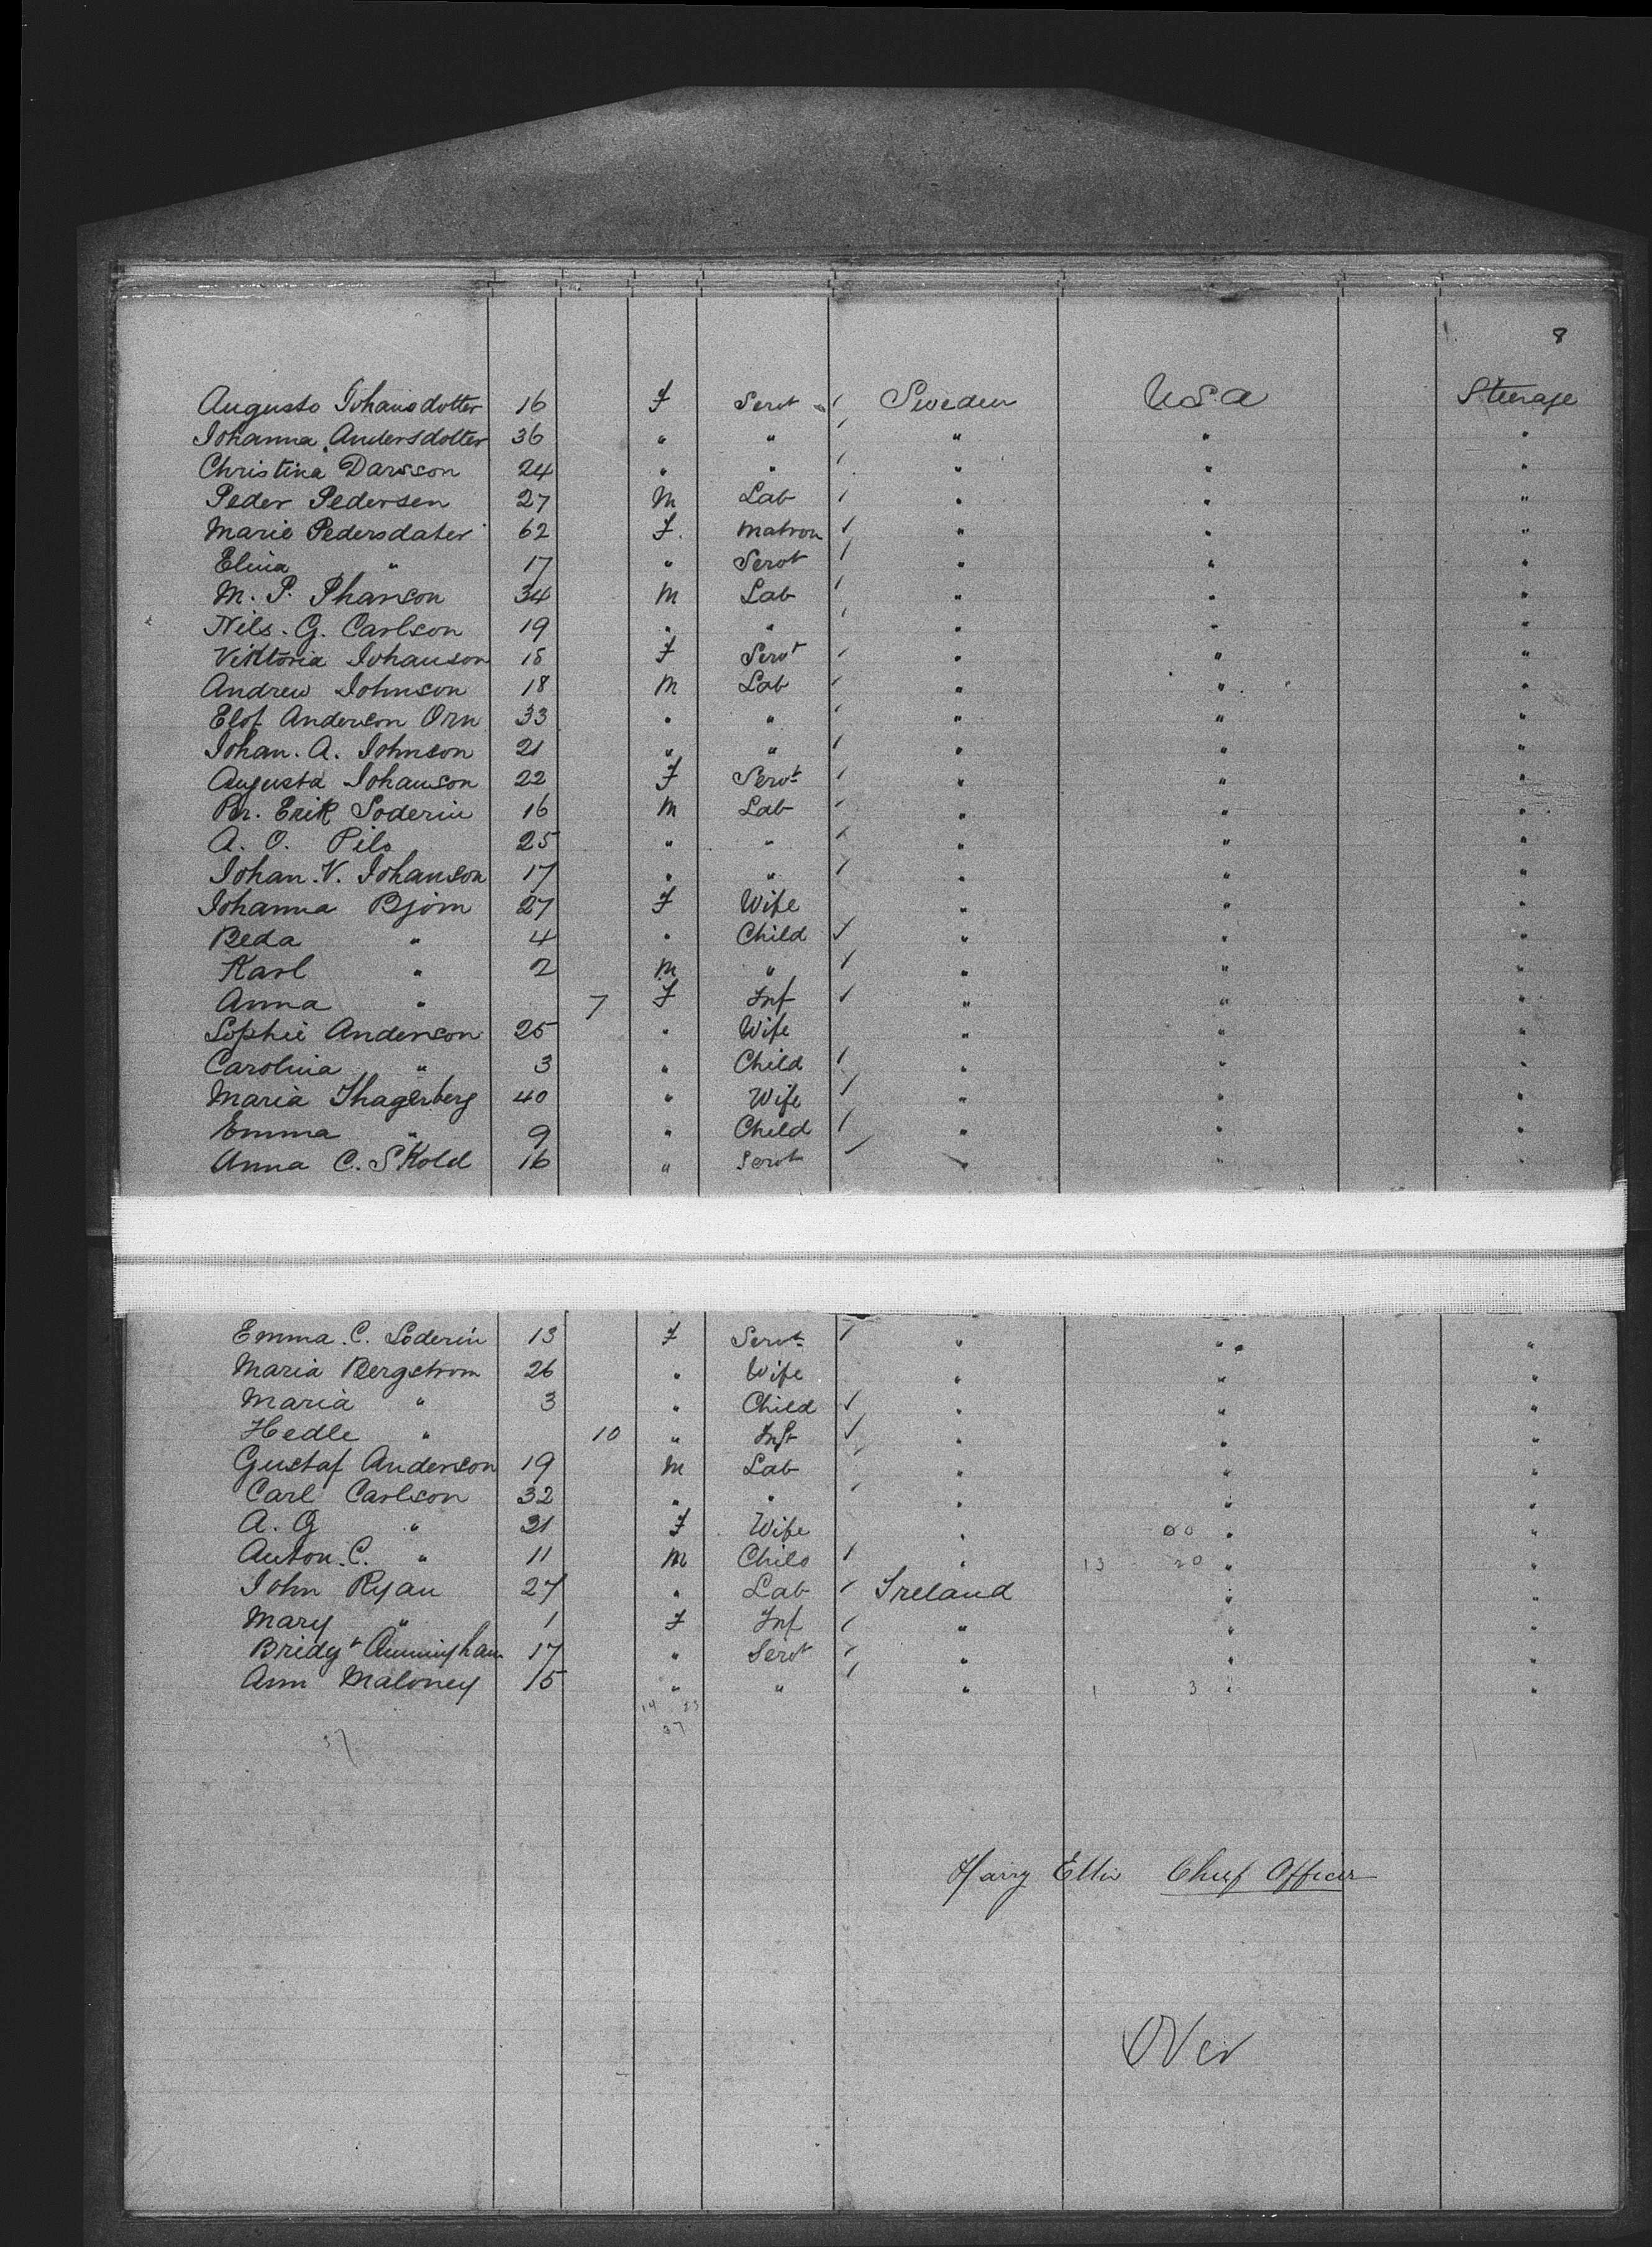 8
Augusto Johansdotter 16 F Servt Sweden USA Steerage
Johanna Andersdotter 36 " " " " "
Christina Darsson 24 " " " " "
Peder Pedersen 27 M Lab " " "
Marie Pedersdater 62 F. Matron " " "
Elina " 17 " Servt " " "
M. P. Phanson 34 M Lab " " "
Nils. G. Carlson 19 " " " " "
Viktoria Johanson 18 F Servt " " "
Andrew Johnson 18 M Lab " " "
Elof Anderson Orn 33 " " " " "
Johan. A. Johnson 21 " " " " "
Augusta Johanson 22 F Servt " " "
Br. Erik Soderin 16 M Lab " " "
A. O. Pils 25 " " " " "
Johan. V. Johanson 17 " " " " "
Johanna Bjorn 27 F Wife " " "
Beda " 4 " Child " " "
Karl " 2 M " " " "
Anna " 7 F Inf " " "
Sophie Anderson 25 " Wife " " "
Carolina " 3 " Child " " "
Maria Thagerberg 40 " Wife " " "
Emma " 9 " Child " " "
Anna C. Skold 16 " Servt " " "
Emma. C. Soderin 13 F Servt " " "
Maria Bergstrom 26 " Wife " " "
Maria " 3 " Child " " "
Hedle " 10 " Inft " " "
Gustaf Anderson 19 M Lab " " "
Carl Carlson 32 " " " " "
A. G " 31 F Wife " 00 " "
Anton. C. " 11 M Child " 13 20 " "
John Ryan 27 " Lab Ireland " "
Mary " 1 F Inf " " "
Bridgt Cunningham 17 " Servt " " "
Ann Maloney 15 " " " 1 3 " "
14 23
37 37
Harry Ellis Chief Officer
Over